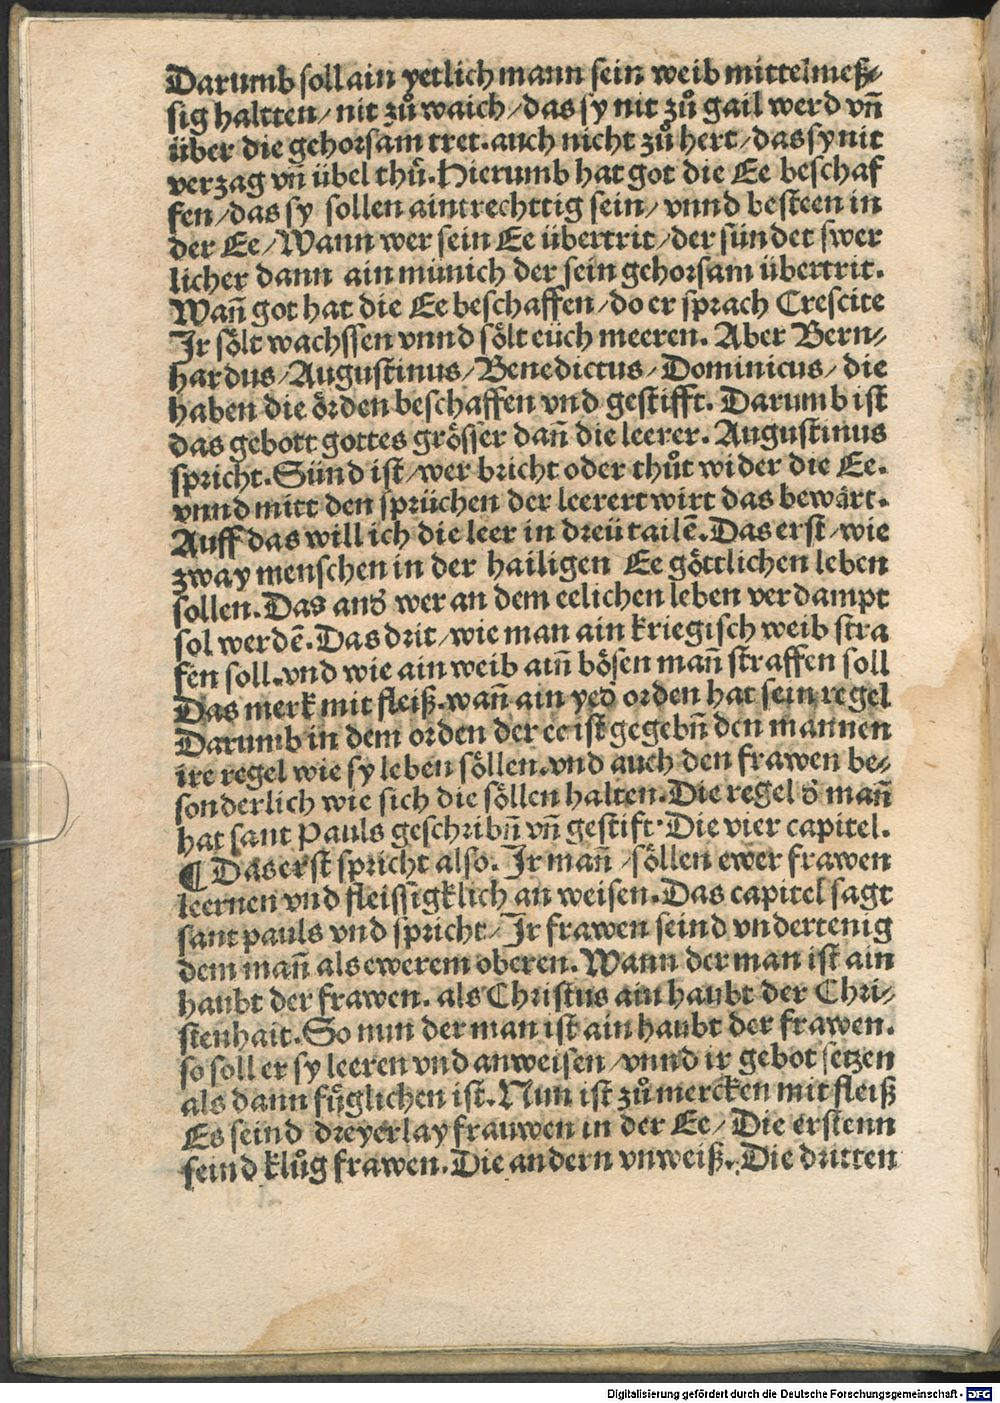 Darumb soll ain yetlich mann sein weib mittelmeß⸗
sig haltten/ nit zů waich/ das sy nit zů gail werd vñ
über die gehorsam tret. auch nicht zů hert/ das sy nit
verzag vñ übel thů. Hierumb hat got die Ee beschaf
fen/ das sy sollen aintrechttig sein/ vnnd besteen in
der Ee/ Wann wer sein Ee übertrit/ der sündet swer
licher dann ain münich der sein gehorsam übertrit.
Wañ got hat die Ee beschaffen/ do er sprach Crescite
Ir sölt wachssen vnnd sölt eüch meeren. Aber Bern⸗
hardus/ Augustinus/ Benedictus/ Dominicus/ die
haben die örden beschaffen vnd gestifft. Darumb ist
das gebott gottes grösser dañ die leerer. Augustinus
spricht. Sünd ist/ wer bricht oder thůt wider die Ee.
vnnd mitt den sprüchen der leerert wirt das bewärt.
Auff das will ich die leer in dreü tailē. Das erst/ wie
zway menschen in der hailigen Ee göttlichen leben
sollen. Das anď wer an dem eelichen leben verdampt
sol werdē. Das drit/ wie man ain kriegisch weib stra
fen soll. vnd wie ain weib aiñ bösen mañ straffen soll
Das merk mit fleiß. wañ ain yeď orden hat sein regel
Darumb in dem orden der ee ist gegebñ den mannen
ire regel wie sy leben söllen. vnd auch den frawen be⸗
sonderlich wie sich die söllen halten. Die regel ď mañ
hat sant Pauls geschribñ vñ gestift. Die vier capitel.
¶ Das erst spricht also. Ir mañ/ söllen ewer frawen
leernen vnd fleissigklich an weisen. Das capitel sagt
sant pauls vnd spricht/ Ir frawen seind vndertenig
dem mañ als ewerem oberen. Wann der man ist ain
haubt der frawen. als Christus ain haubt der Chri⸗
stenhait. So nun der man ist ain haubt der frawen.
so soll er sy leeren vnd anweisen/ vnnd ir gebot setzen
als dann fůglichen ist. Nun ist zů mercken mit fleiß
Es seind dreyerlay frauwen in der Ee/ Die erstenn
seind klůg frawen. Die andern vnweiß. Die dritten
Digitalisierung gefördert durch die Deutsche Forschungsgemeinschaft - DFG